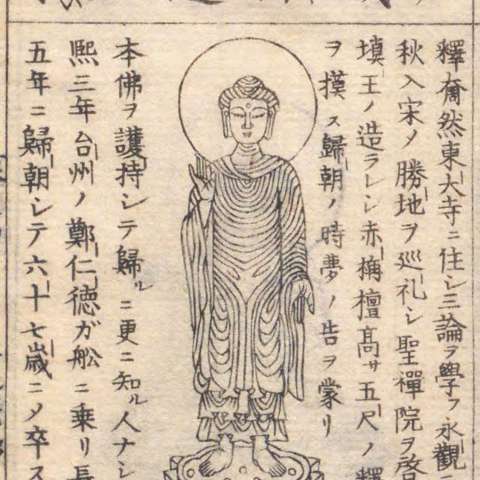 釋奝然東大寺ニ住シ三論ヲ學フ永觀
秋入宋ノ勝地ヲ巡礼シ聖禪院ヲ啓
塡王ノ造ラレシ赤栴檀高サ五尺ノ釋
ヲ摸ス歸朝ノ時夢ノ告ヲ蒙リ
本佛ヲ護持シテ歸ルニ更ニ知ル人ナシ
熙三年台州ノ鄭仁徳ガ舩ニ乗リ長
五年ニ歸朝シテ六十七歳ニメ卒ス